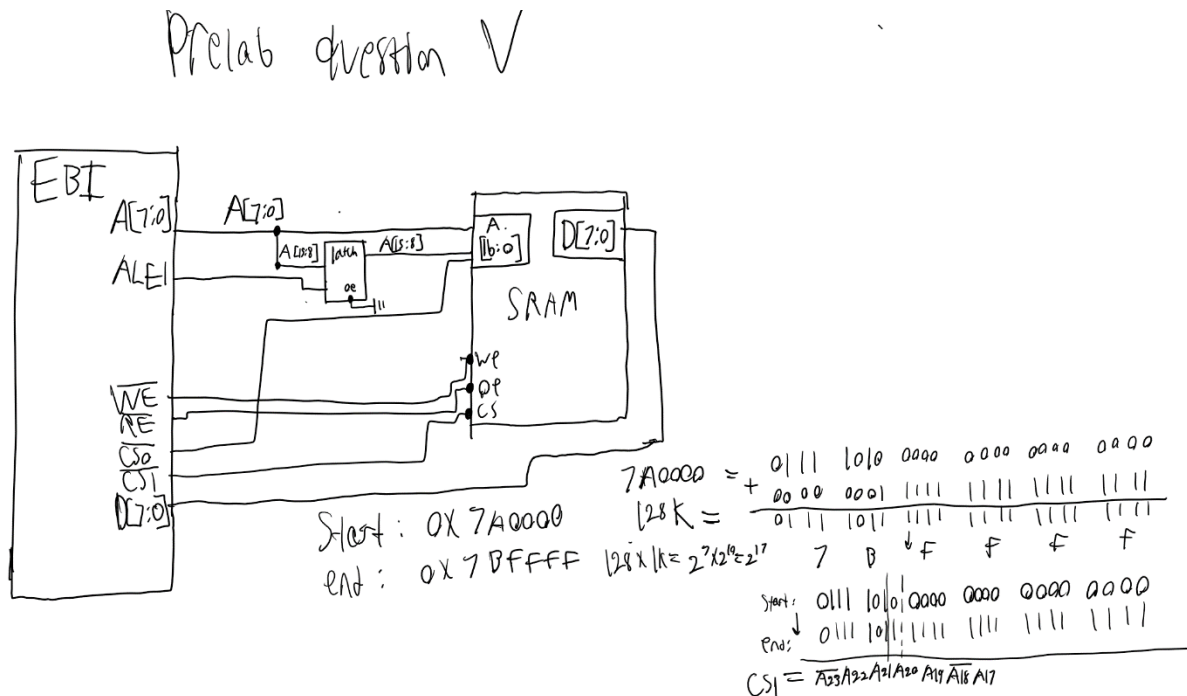 Prelab question V
EBI
A[7:0]
A[7:0]
ALE1
A[15:8]
latch
oe
A[15:8]
A.
[16:0]
D[7:0]
SRAM
WE
RE
CS0
CS1
D[7:0]
we
oe
CS
Start: 0x7A0000
end: 0x7BFFFF
128x1K=2^7x2^10=2^17
7A0000 = 0111 1010 0000 0000 0000 0000
128K = + 0000 0001 1111 1111 1111 1111
0111 1011 1111 1111 1111 1111
7 B F F F F
Start: 0111 1010 0000 0000 0000 0000
end: 0111 1011 1111 1111 1111 1111
CS1 = A23 A22 A21 A20 A19 A18 A17